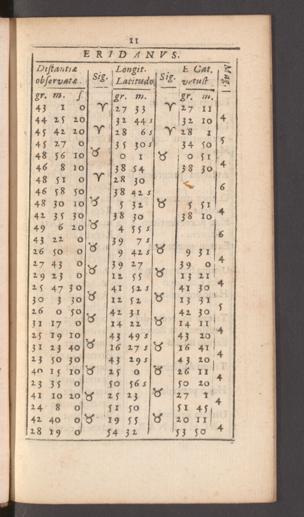 11
ERIDANVS.
Distantiæ Longit. E Cat. Mag.
observatæ. Sig. Latitudo Sig. vetust
gr. m. ſ gr. m. gr. m.
43 1 0 ♈ 27 33 ♈ 27 11
44 25 20 32 44 s 32 10 4
45 42 20 ♈ 28 6 s ♈ 28 1
45 27 0 35 30 s 34 50 5
48 56 10 ♉ 0 1 ♉ 0 51
46 8 10 38 54 38 30 4
48 51 0 ♈ 28 30
46 58 50 38 42 s 6
48 30 10 ♉ 5 32 ♉ 5 51
42 35 30 38 30 38 10 4
49 6 20 ♉ 4 55 s
43 22 0 39 7 s 6
26 50 0 ♉ 9 42 s ♉ 9 31
27 43 0 39 27 39 0 4
29 23 0 ♉ 12 55 ♉ 13 21
25 47 30 41 52 s 41 30 4
30 3 30 ♉ 12 52 ♉ 13 31
26 0 50 42 31 42 30 5
31 17 0 ♉ 14 22 ♉ 14 11
25 19 10 43 49 s 43 20 4
31 23 40 ♉ 16 27 s ♉ 16 41
23 50 30 43 29 s 43 20 4
40 15 10 ♉ 25 0 ♉ 26 11
23 35 0 50 56 s 50 20 4
41 10 20 ♉ 25 23 ♉ 27 1
24 8 0 51 50 51 45 4
42 40 0 ♉ 19 55 ♉ 20 11
28 19 0 54 32 53 50 4